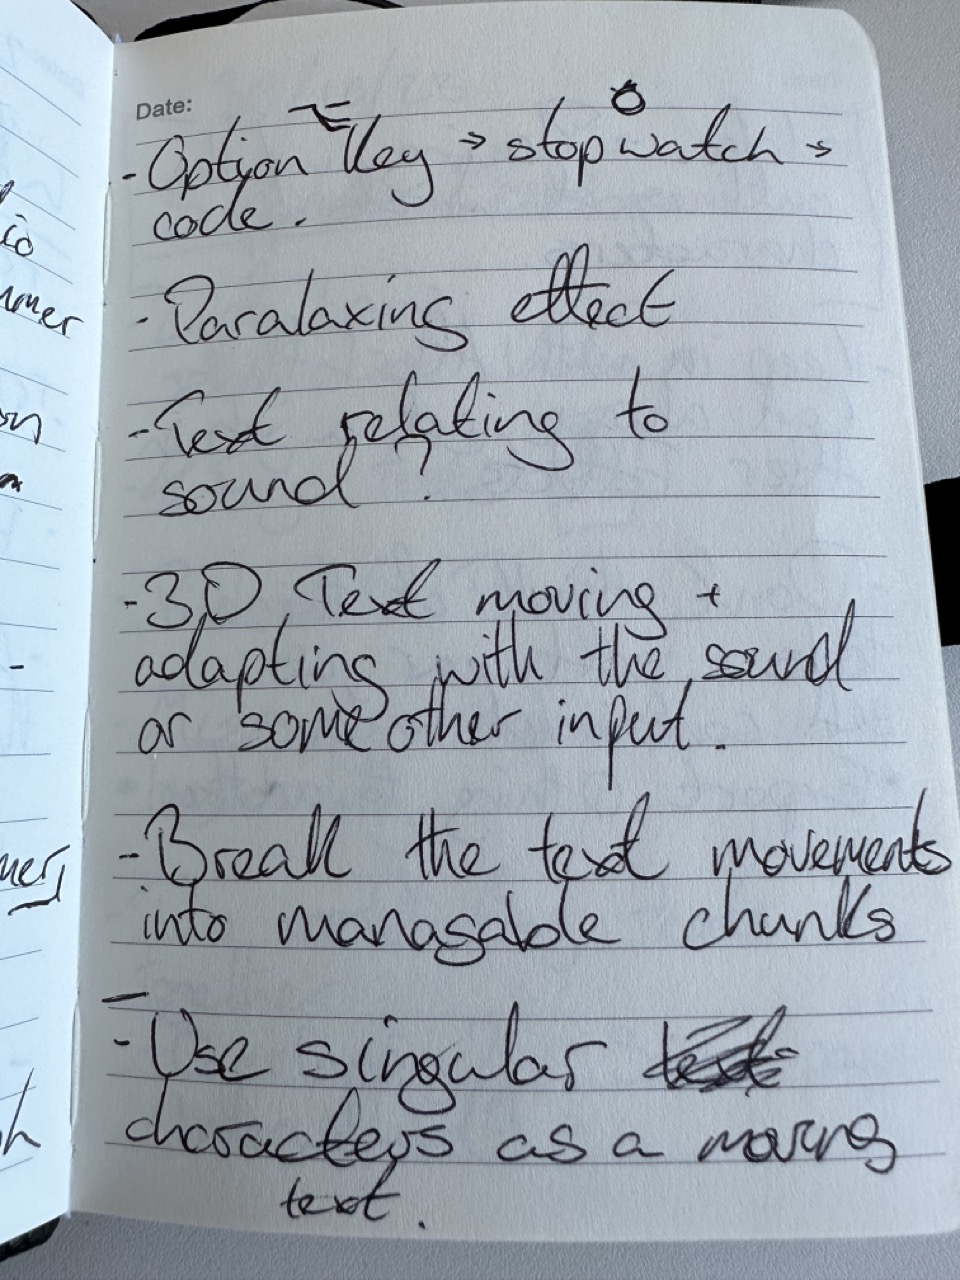 Date:
- Option Key → stopwatch →
code.
- Paralaxing effect
- Text relating to
sound?
- 3D Text moving +
adapting with the sound
or some other input.
- Break the text movements
into managable chunks
- Use singular
characters as a moving
text.
io
on